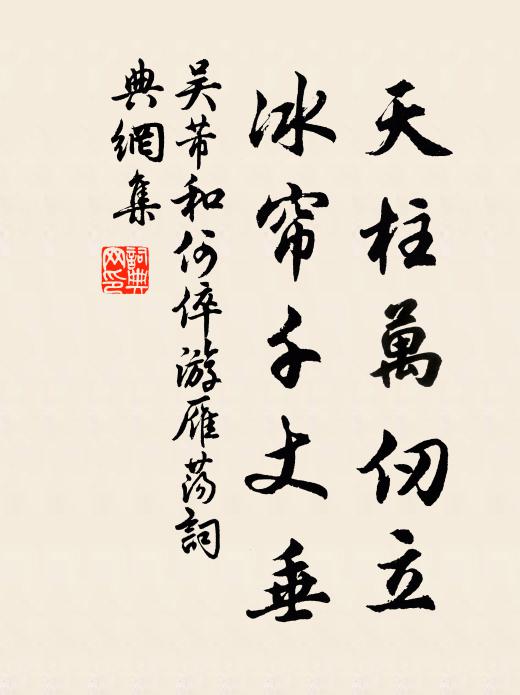 天柱萬仞立
冰帘千丈垂
吴芾和何倅游雁荡詞
典網集
詞典
网印